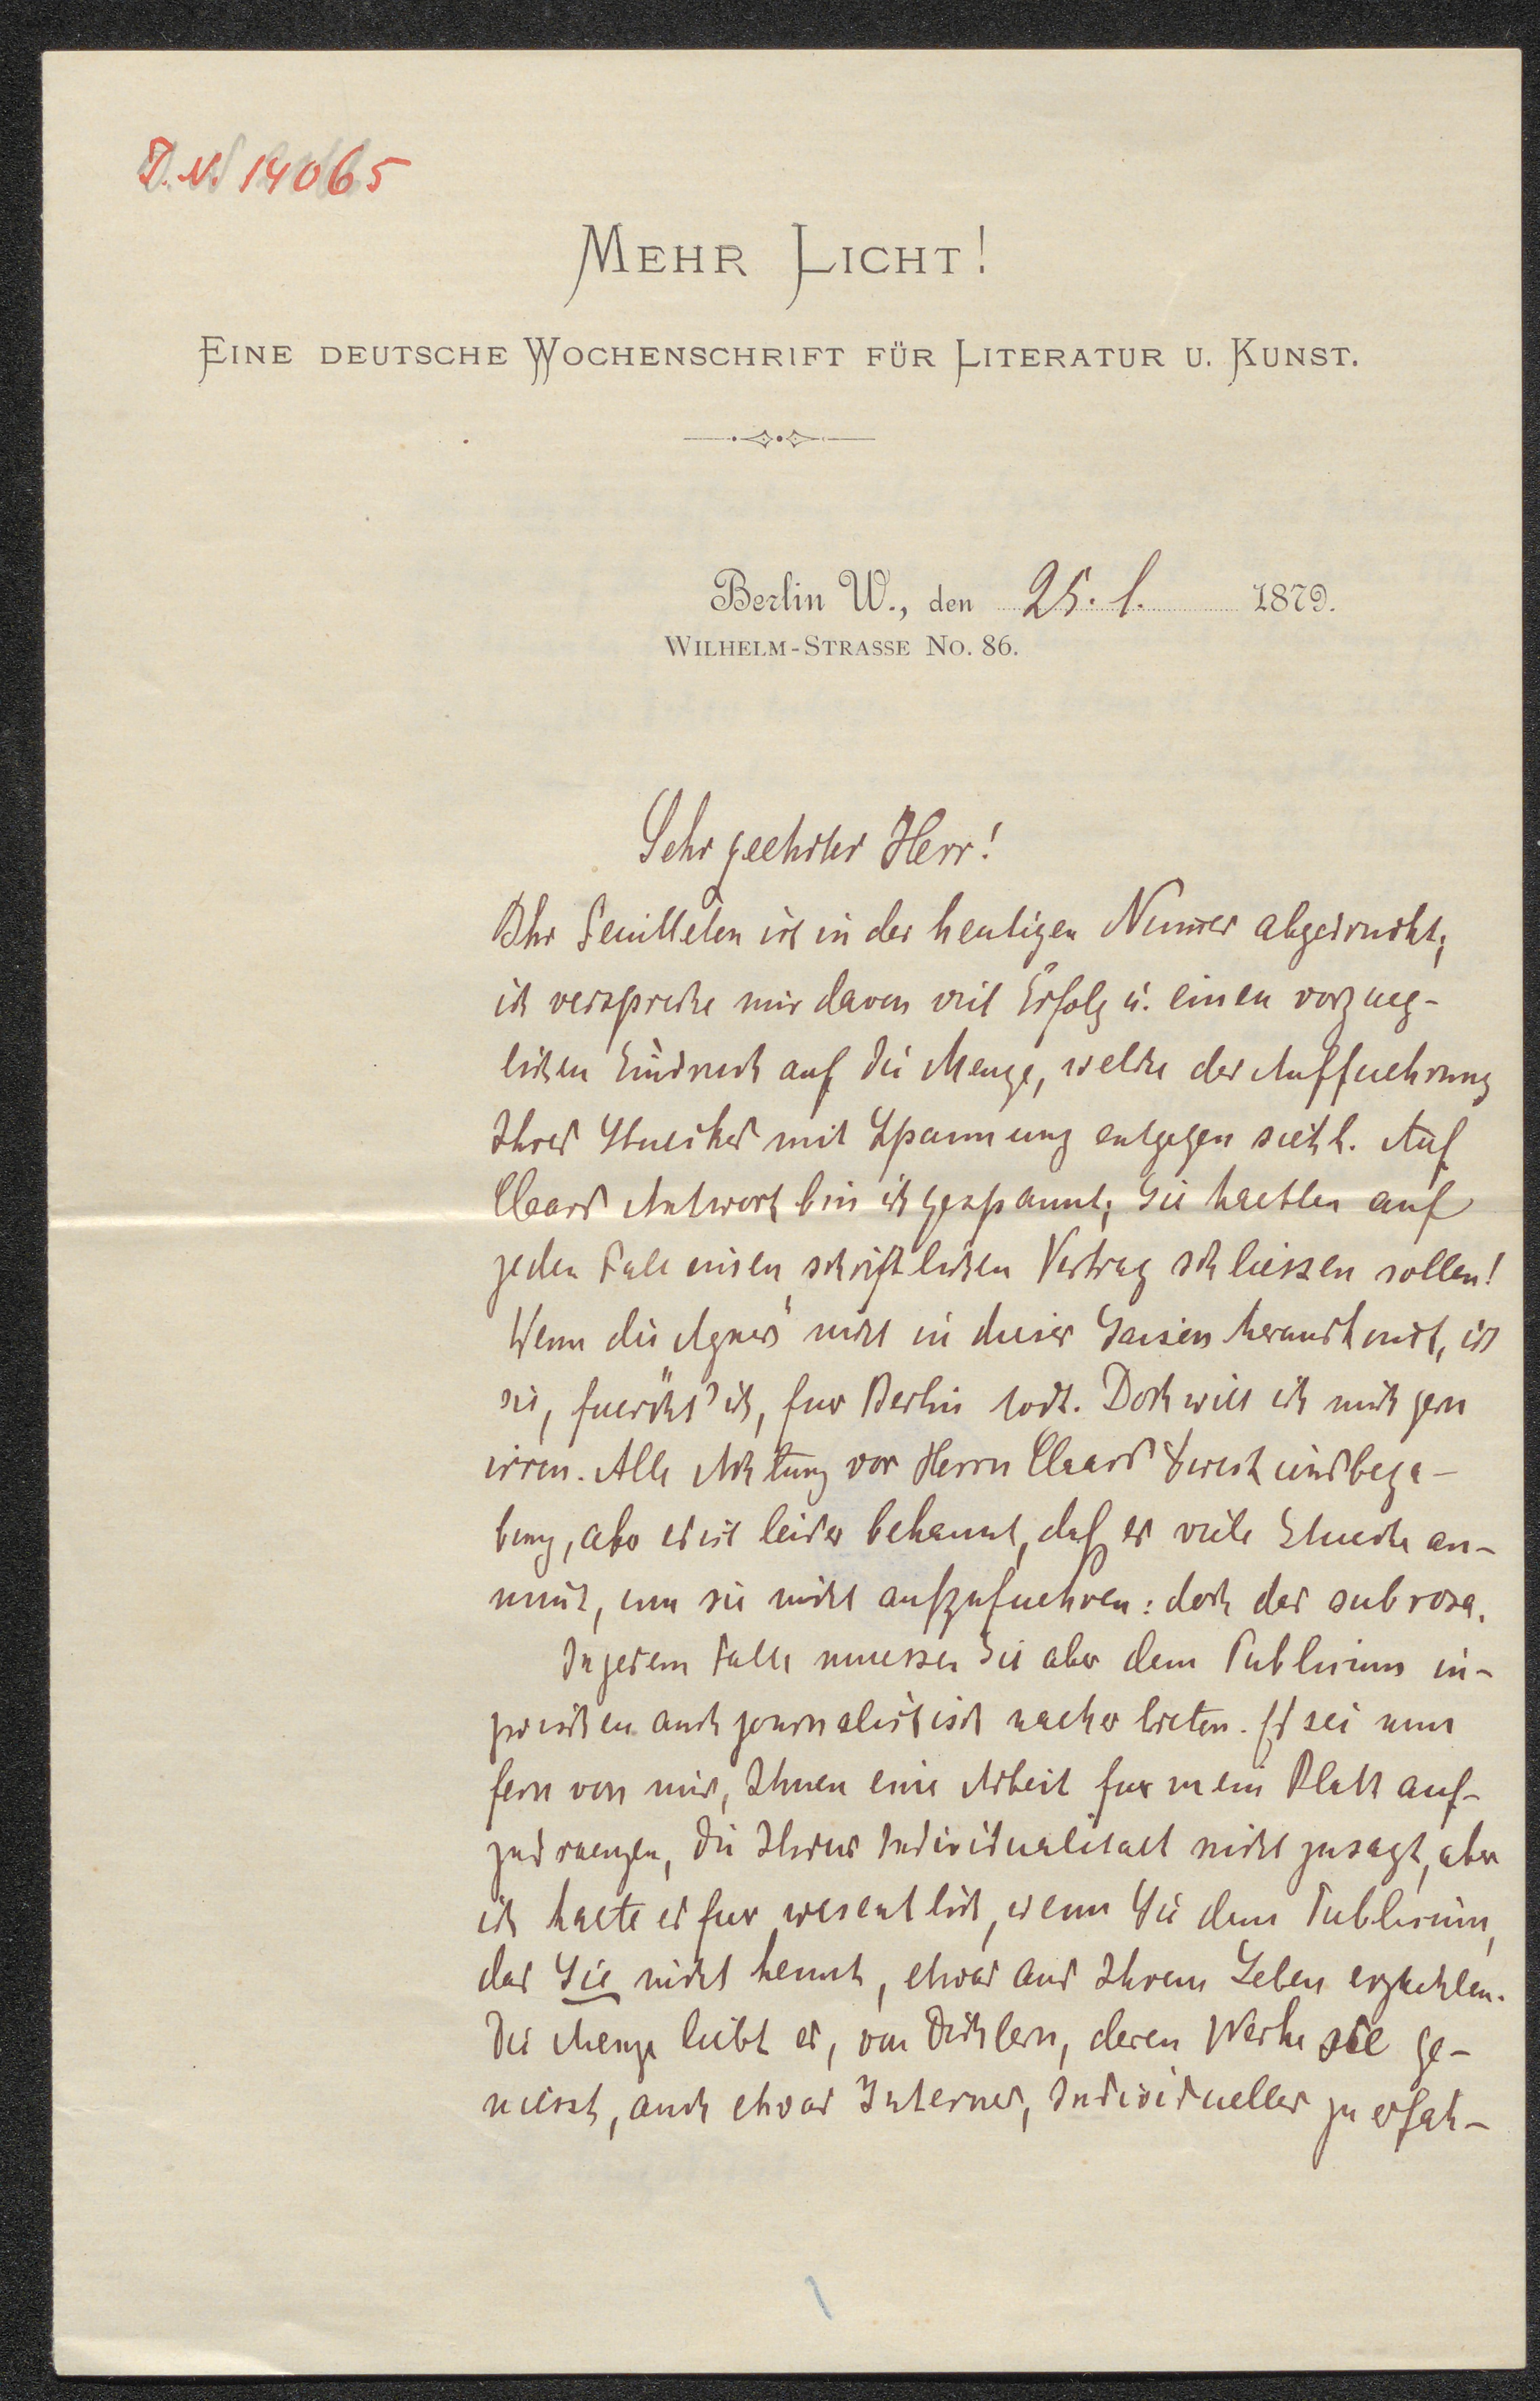 I. N. 14065
MEHR LICHT!
EINE DEUTSCHE WOCHENSCHRIFT FÜR LITERATUR U. KUNST.
Berlin W., den 25. 1. 1879.
WILHELM-STRASSE No. 86.
Sehr geehrter Herr!
Ihr Feuilleton ist in der heutigen Num̄er abgedruckt;
ich verspreche mir davon viel Erfolg u. einen vorzueg-
lichen Eindruck auf die Menge, welche der Auffuehrung
Ihres Stueckes mit Spannung entgegen sieht. Auf
Claars Antwort bin ich gespannt; Sie haetten auf
jeden Fall einen schriftlichen Vertrag schliessen sollen!
Wenn die „Agnes" nicht in dieser Saison herauskomt, ist
sie, fuercht' ich, fuer Berlin todt. Doch will ich mich gern
irren. Alle Achtung vor Herrn Claars
bung, aber es ist leider bekannt, daß er viele Stuecke an-
nimt, um sie nicht aufzufuehren: doch das sub rosa.
In jedem Falle muessen Sie aber dem Publicum in-
zwischen auch journalistisch naeher treten. Es sei nun
fern von mir, Ihnen eine Arbeit fuer mein Blatt auf-
zudraengen, die Ihrer Individualitaet nicht zusagt, aber
ich halte es fuer wesentlich, wenn Sie dem Publicum,
das Sie nicht kennt, etwas aus Ihrem Leben erzaehlen.
Die Menge liebt es, von Dichtern, deren Werke sie ge-
niesst, auch etwas Internes, Individuelles zu erfah-